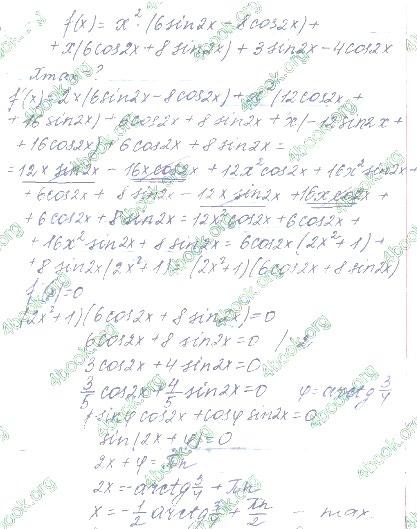 f(x) = x² · (6sin2x - 8cos2x) +
+ x(6cos2x + 8sin2x) + 3sin2x - 4cos2x
xmax ?
f'(x) = 2x(6sin2x - 8cos2x) + x² (12cos2x +
+ 16sin2x) + 6cos2x + 8sin2x + x(-12sin2x +
+ 16cos2x) + 6cos2x + 8sin2x =
= 12x sin2x - 16x cos2x + 12x²cos2x + 16x²sin2x +
+ 6cos2x + 8sin2x - 12x sin2x + 16x cos2x +
+ 6cos2x + 8sin2x = 12x²cos2x + 6cos2x +
+ 16x²sin2x + 8sin2x = 6cos2x(2x²+1) +
+ 8sin2x(2x²+1) = (2x²+1)(6cos2x + 8sin2x)
f'(x) = 0
(2x²+1)(6cos2x + 8sin2x) = 0
6cos2x + 8sin2x = 0 / 2
3cos2x + 4sin2x = 0
3/5 cos2x + 4/5 sin2x = 0 φ = arctg 3/4
sinφ cos2x + cosφ sin2x = 0
sin(2x + φ) = 0
2x + φ = πn
2x = -arctg 3/4 + πn
x = -1/2 arctg 3/4 + πn/2 - max
4book.org